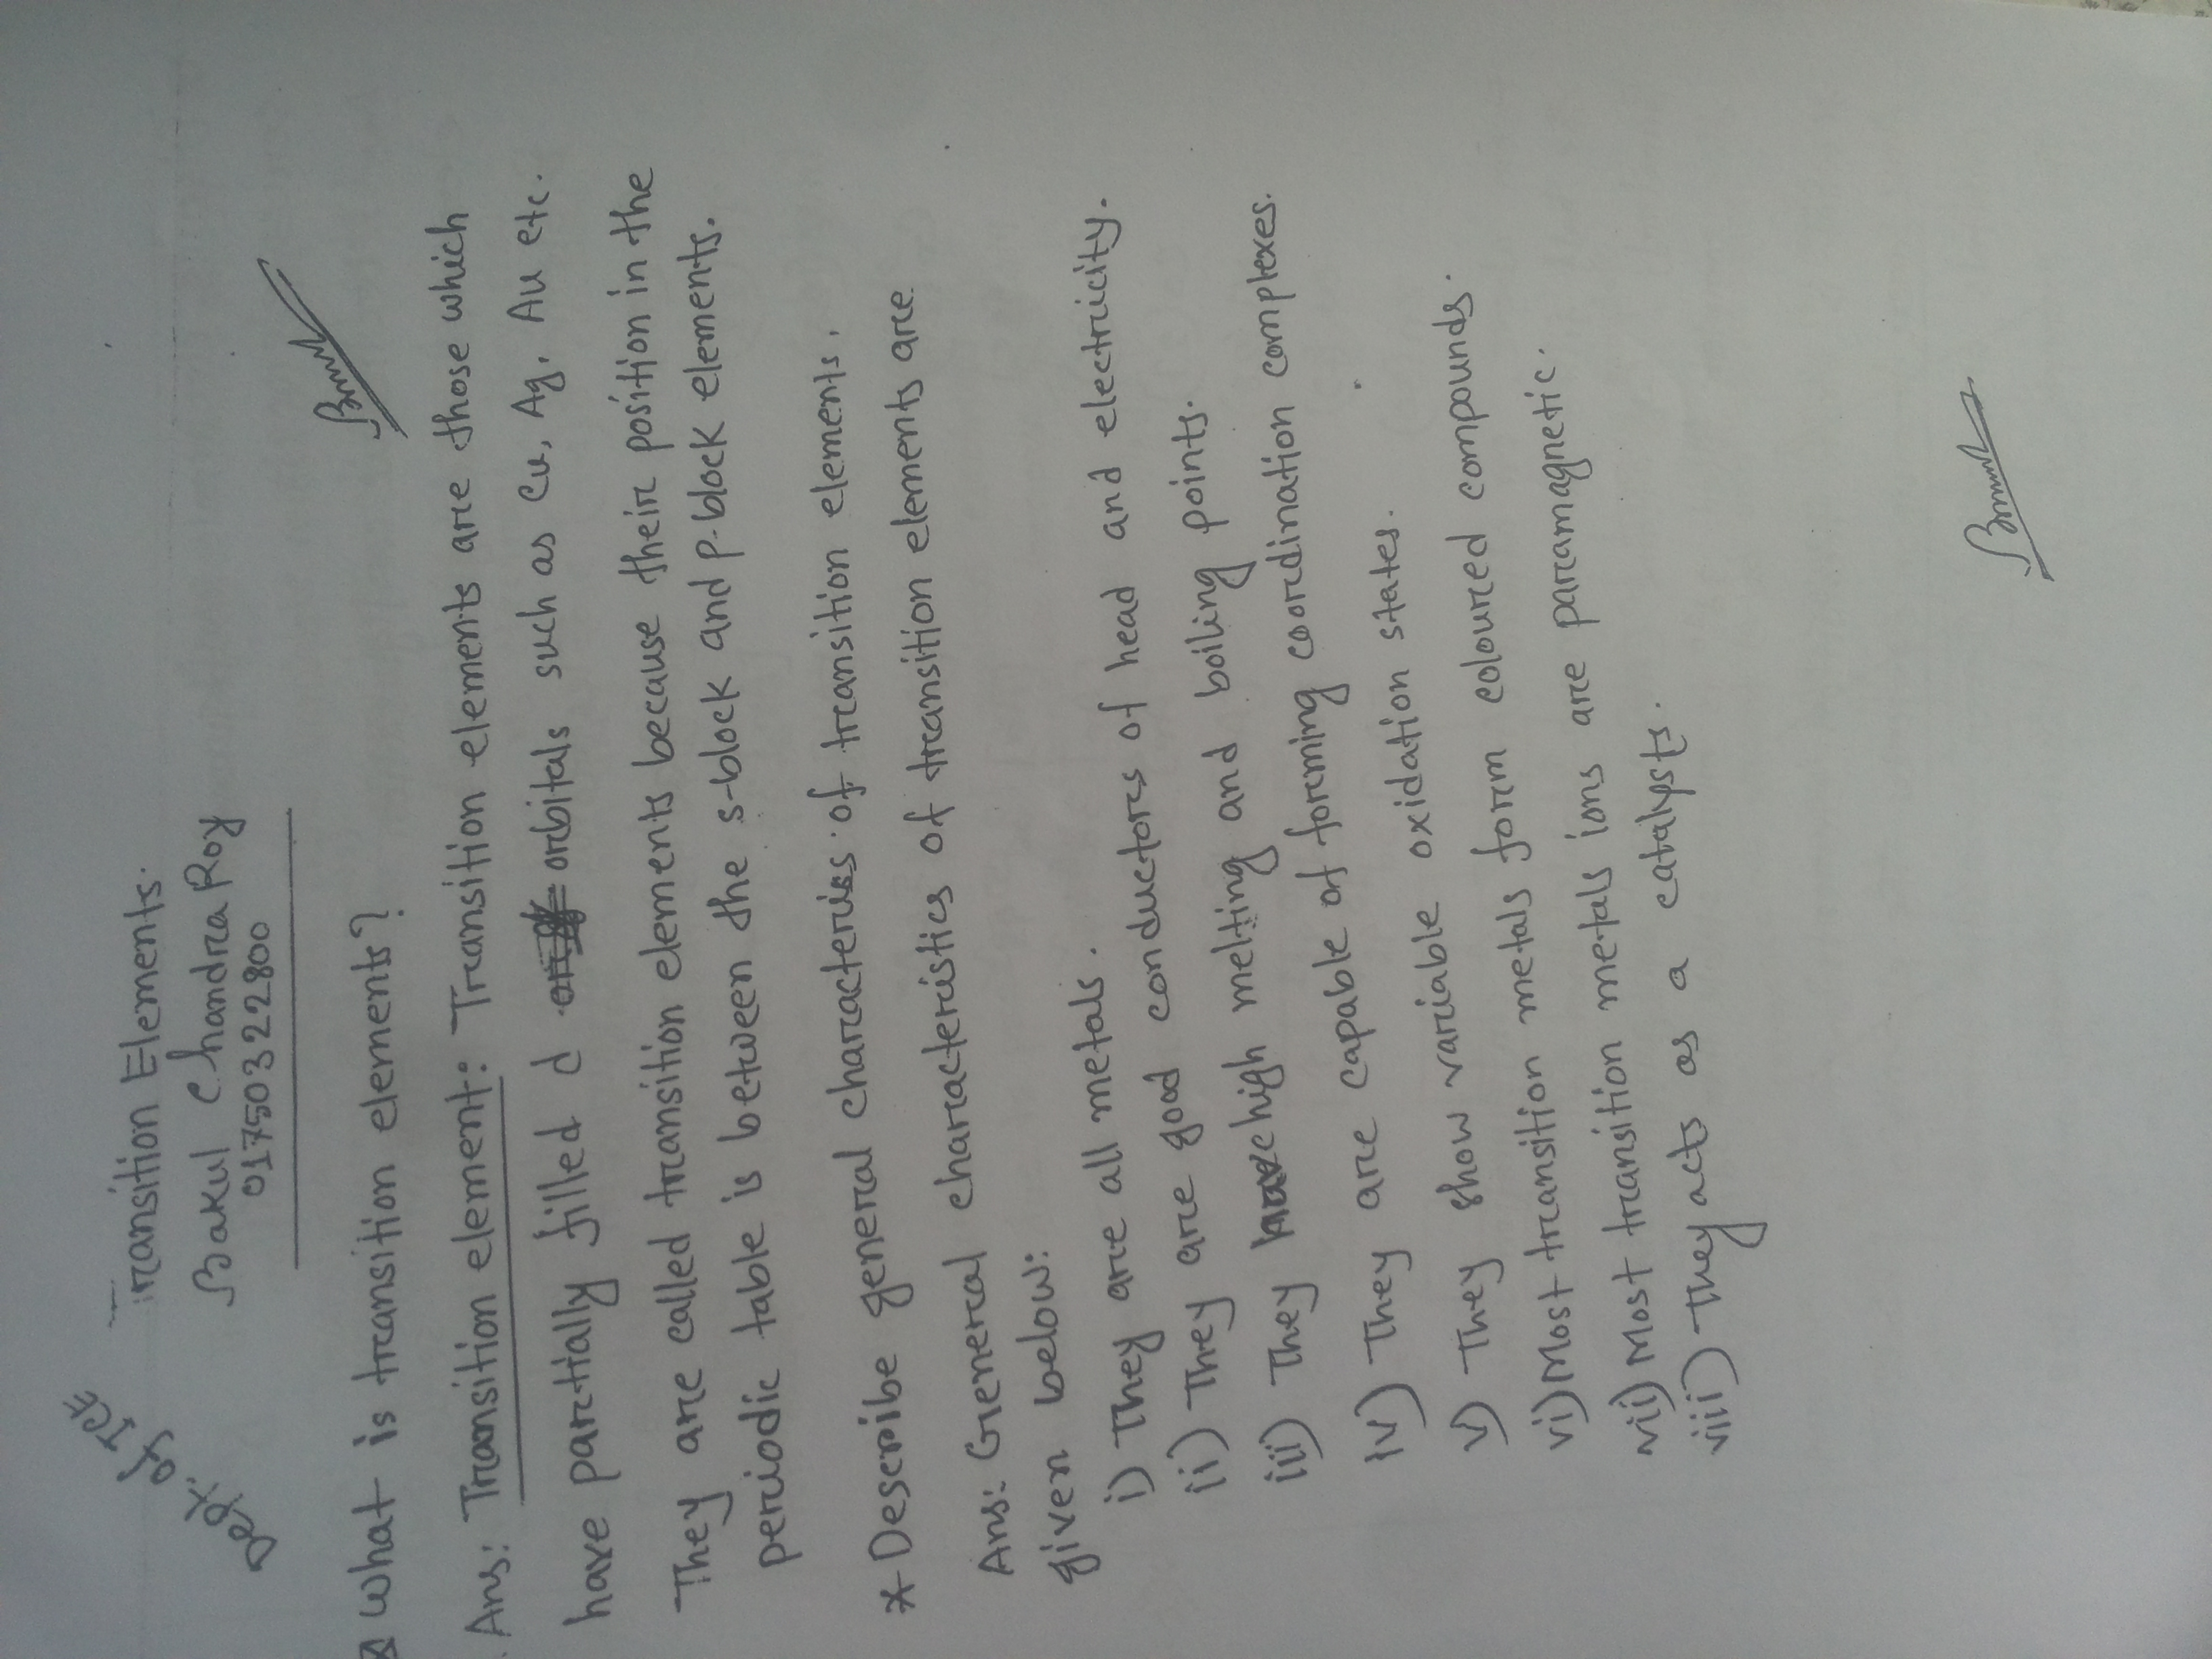 Transition Elements.
Bakul Chandra Roy
01750322800
Dept. of TE
What is transition elements?
Ans: Transition element: Transition elements are those which
have partially filled d orbitals such as Cu, Ag, Au etc.
They are called transition elements because their position in the
periodic table is between the s-block and p-block elements.
* Describe general characteriss of transition elements.
Ans: General characteristics of transition elements are
given below:
i) They are all metals.
ii) They are good conductors of head and electricity.
iii) They have high melting and boiling points.
iv) They are capable of forming coordination complexes.
v) They show variable oxidation states.
vi) Most transition metals form coloured compounds.
vii) Most transition metals ions are paramagnetic.
viii) They acts as a catalysts.